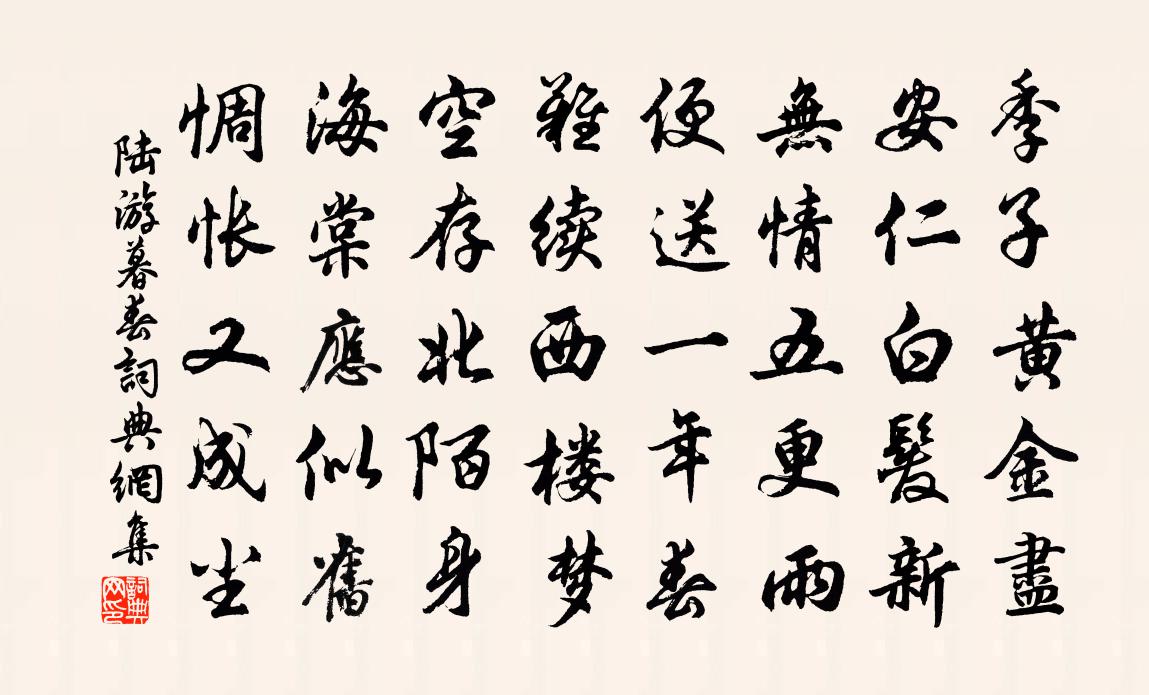 季子黄金盡
安仁白髮新
無情五更雨
便送一年春
難续西楼梦
空存北陌身
海棠應似舊
惆怅又成尘
陆游暮春詞典網集
詞典
网印